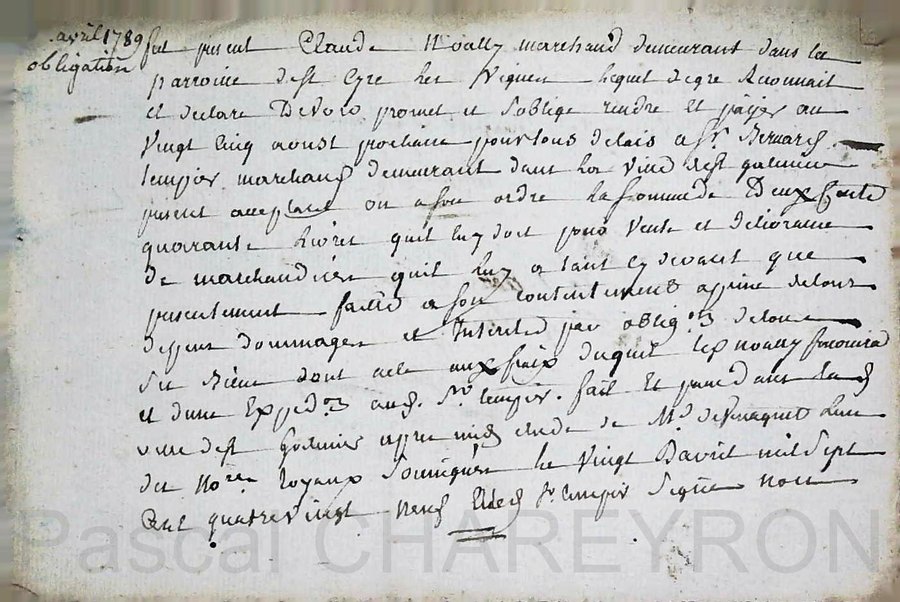 avril 1789
obligation
fut present Claude Noally marchand demeurant dans la
parroisse de st Cyre les Vignes lequel de gre reconnait
et declare Devoir promet et s'oblige rendre et payer au
Vingt Cinq aoust prochain pour tous delais a Sr. Bernard
marchand demeurant dans la ville de st galmier
present acceptant ou a son ordre la somme de Deux Cents
quarante Livres quil luy doit pour Vente et delivrance
de marchandises quil luy a tant cy devant que
presentement faitte a son contentement a peine de tous
depens dommages et Interets par oblig.on de tous
ses Biens dont acte aux fraix duquel led noally fournira
et d'une Exped.on aud. Sr. fait et passé dans lad
ville de st Galmier apres midy Etude de Me. l'un
des no.res royaux Soussignés le Vingt D'avril mil Sept
Cent quatre vingt neuf Et led Sr. Signé non
Pascal CHAREYRON